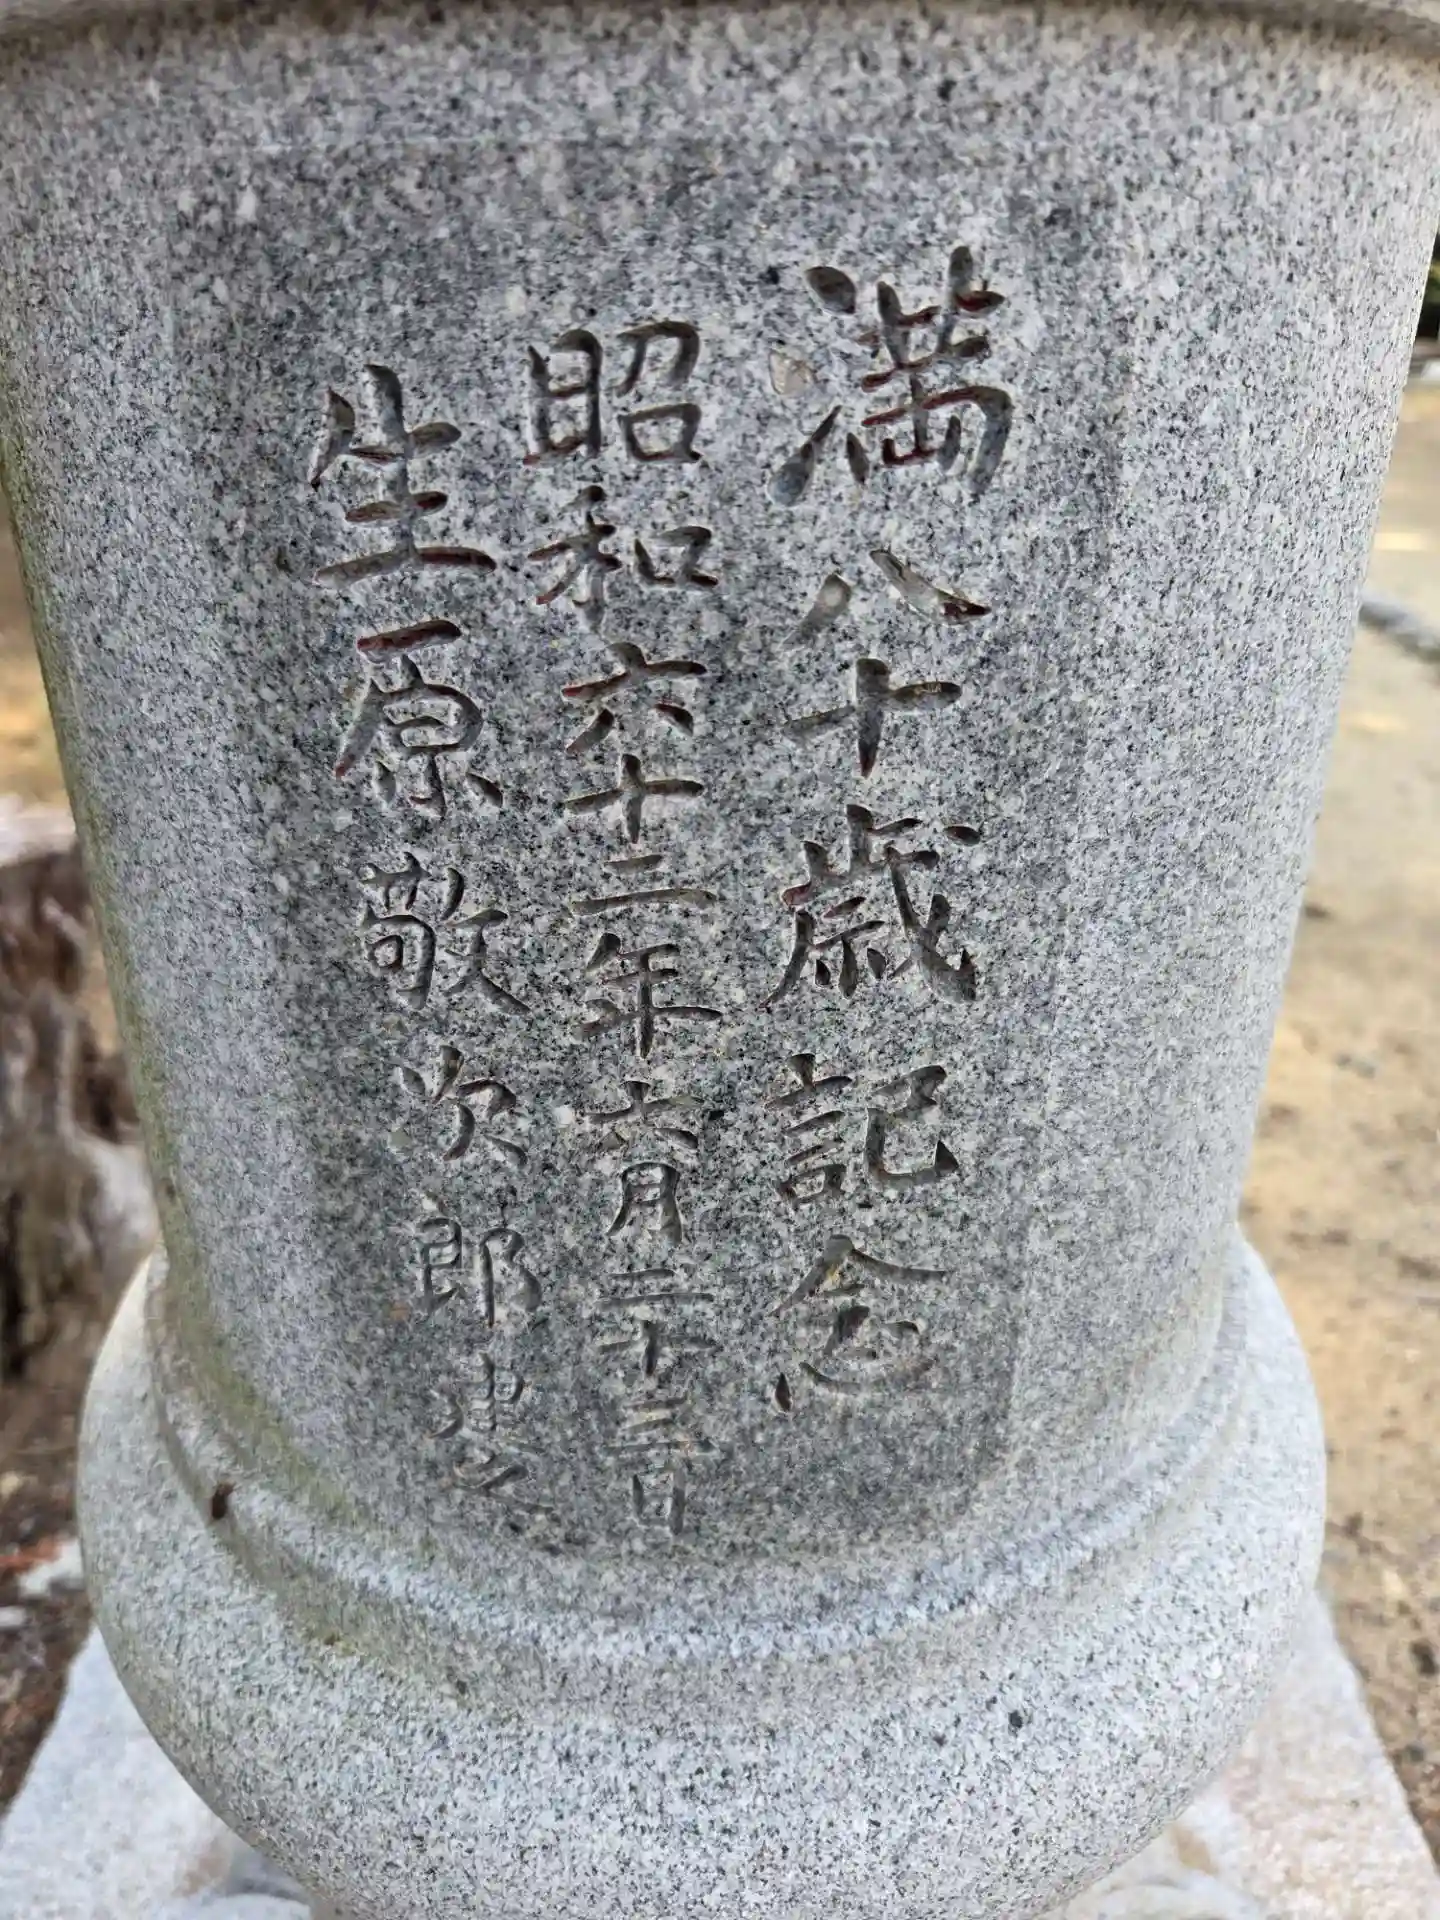 満八十歳記念
昭和六十二年六月二十三日
生原敬次郎建之